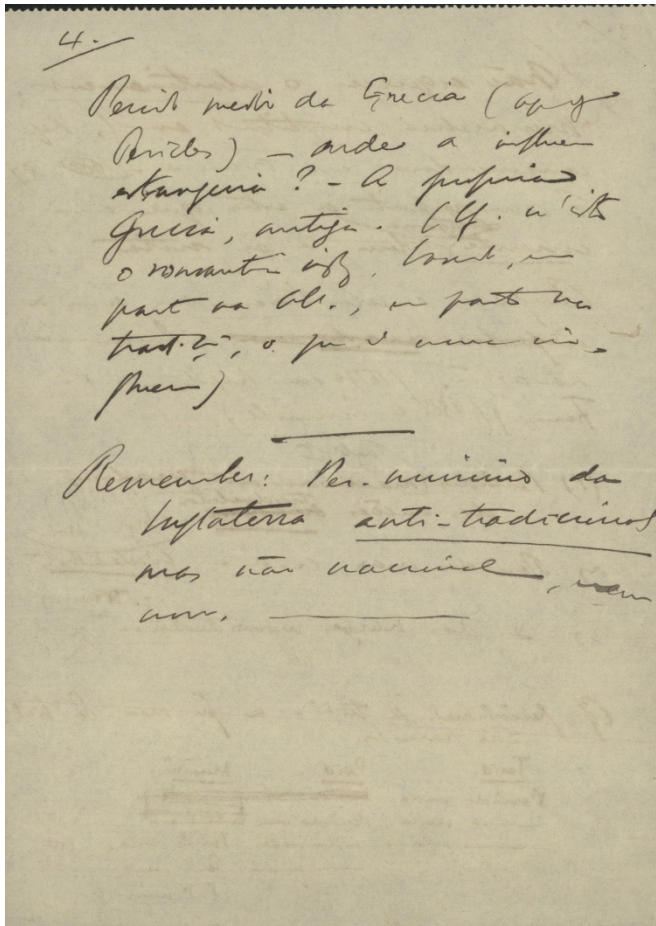 4.
Period medio da Grecia (apoz
Pericles) — onde a influen
estrangeira? — A propria
Grecia, antiga. (Cf. n'isto
o romant. ing. , em
part na All., em parte na
tradiç, o que é uma in-
fluen)
Remember: Per. minimo da
Inglaterra anti-tradicional
mas não nacional, nem